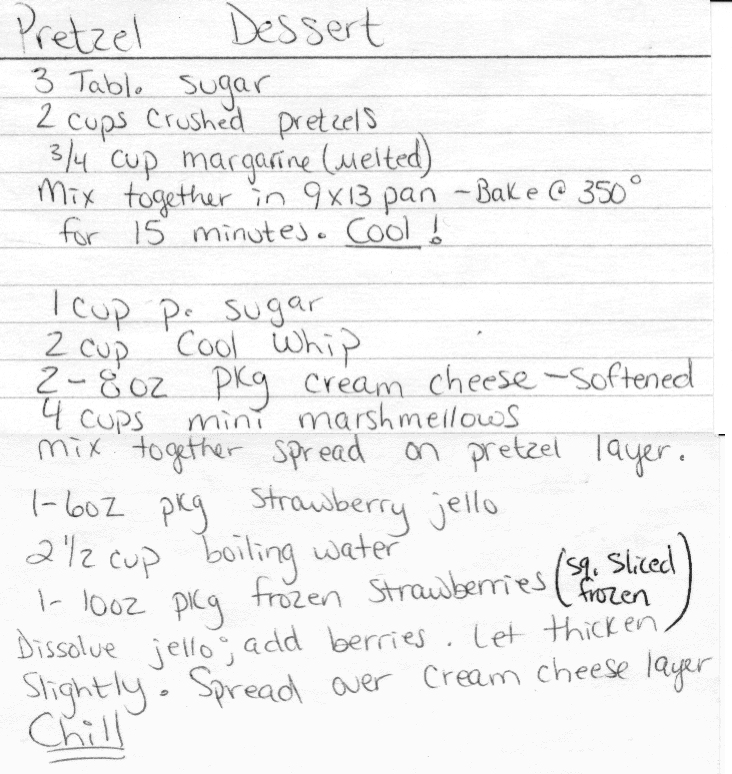 Pretzel Dessert
3 Tabl. sugar
2 cups crushed pretzels
3/4 cup margarine (melted)
Mix together in 9x13 pan - Bake @ 350°
for 15 minutes. Cool!
1 cup p. sugar
2 cup Cool Whip
2 - 8oz pkg cream cheese - softened
4 cups mini marshmellows
mix together spread on pretzel layer.
1 - 6oz pkg strawberry jello
2 1/2 cup boiling water
1 - 10oz pkg frozen strawberries (sq. sliced frozen)
Dissolve jello; add berries. Let thicken
slightly. Spread over cream cheese layer
Chill